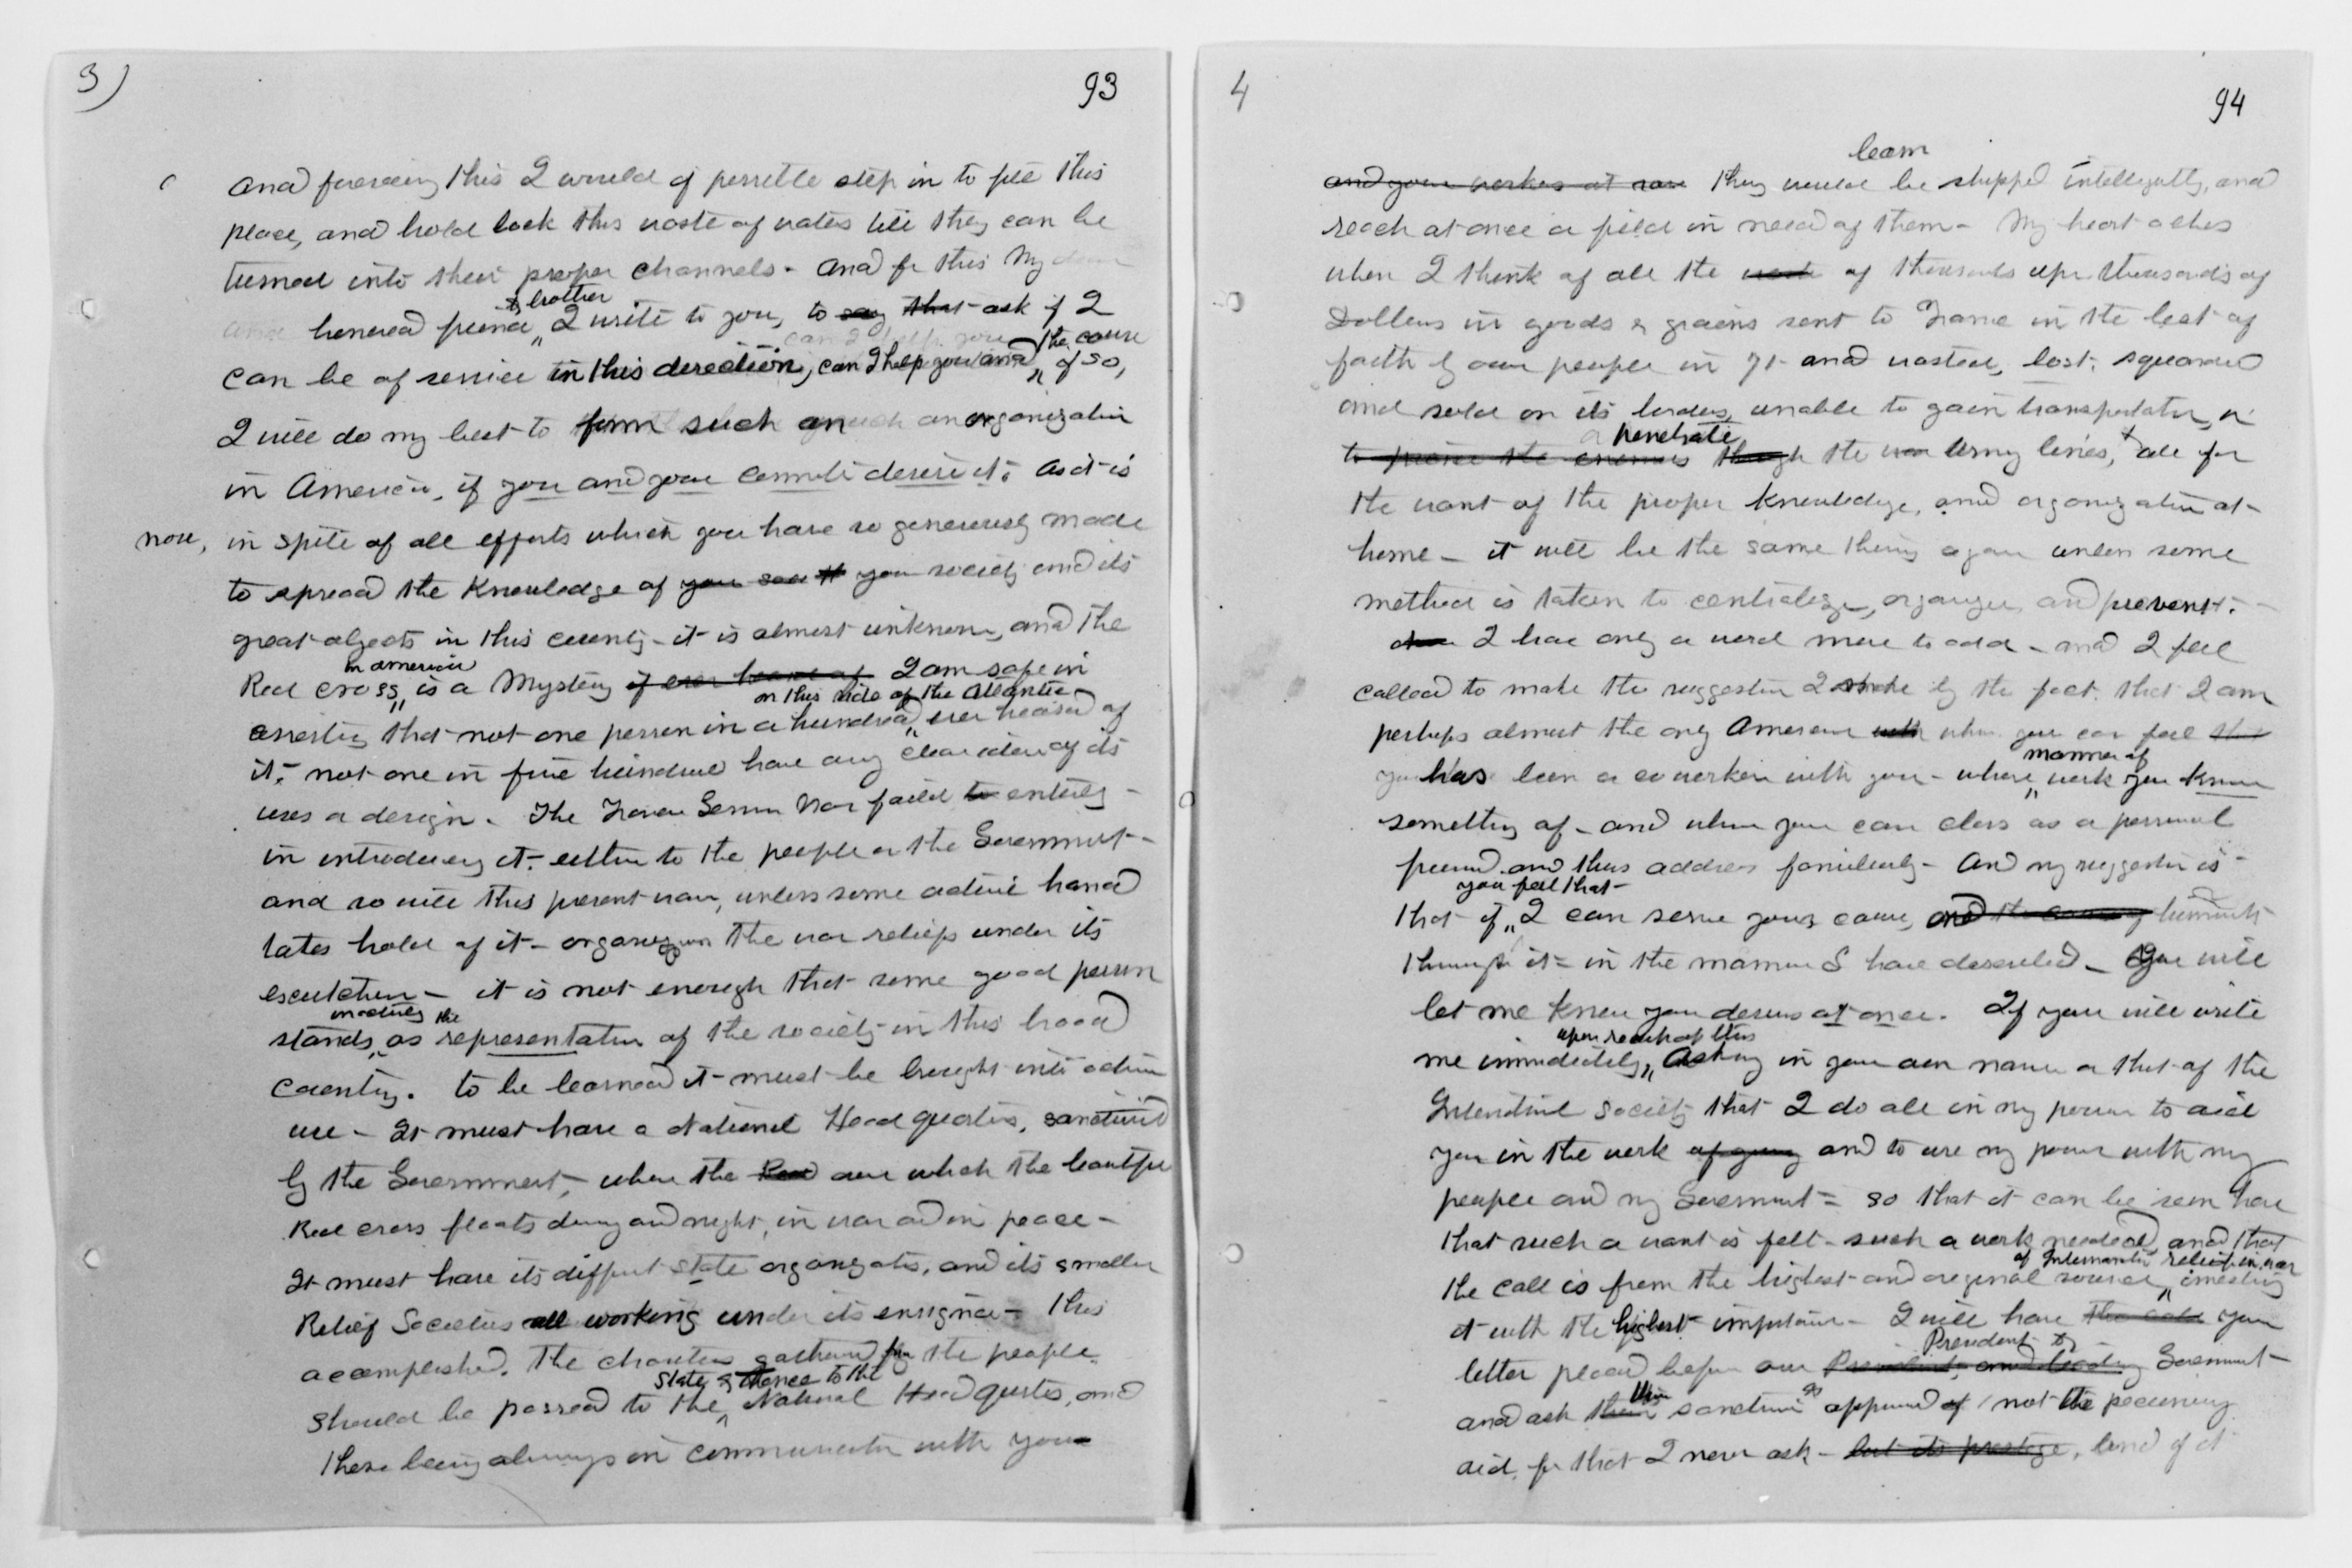 3)
93
and foreseeing this I would if possible step in to fill this
place, and hold back this waste of waters till they can be
turned into their proper channels - and for this My dear
& brother
and honored friend I write to you, to say that ask if I
can I help you the cause
can be of service in this direction, can I help you and if so,
I will do my best to form such an organization
in America, if you and your Comité desire it. As it is
now, in spite of all efforts which you have so generously made
to spread the Knowledge of your soc it your society and its
great objects in this country - it is almost unknown, and the
in america
Red cross, is a Mystery if ever heard of I am safe in
on this side of the Atlantic
asserting that not one person in a hundred, ever heard of
it - not one in five hundred have any clear idea of its
uses or design - The Franco German War failed to entirely
in introducing it - either to the people or the Government -
and so will this present war, unless some active hand
takes hold of it - organizes the war reliefs under its
escutcheon - it is not enough that some good person
inactively the
stands, as representative of the society in this broad
Country. to be learned it must be brought into active
use - It must have a National Head quarters, sanctioned
by the Government, where the Red over which the beautiful
Red cross floats day and night, in war and in peace -
It must have its different state organizations, and its smaller
Relief Societies all working under its ensignia - this
accomplished. The charities gathered from the people
State & thence to the
should be passed to the National Head quarters, and
these being always in communication with you
4
94
learn
and your workers at war they would be shipped intelligently, and
reach at once a field in need of them - My heart aches
when I think of all the of thousands upon thousands of
Dollars in goods & grains sent to France in the best of
faith by our people in 71 - and wasted, lost, squandered
and sold on its borders, unable to gain transportation, or
penetrate
to pierce the enemies through the war army lines, & all for
the want of the proper Knowledge, and organization at
home - it will be the same thing again unless some
method is taken to centralize, organize, and prevent. -
I have only a word more to add - and I feel
called to make the suggestion I make by the fact that I am
perhaps almost the only American with whom you can feel that
manner of
you has been a coworker with you - whose, work you know
something of - and whom you can class as a personal
friend and thus address familiarly - And my suggestion is -
you feel that -
that if, I can serve your cause, and the cause of humanity
through it - in the manner I have described - You will
let me know your desires at once. If you will write
upon receipt of this
me immediately, Asking in your own name or that of the
International Society that I do all in my power to aid
you in the work of going and to use my power with my
people and my Government - so that it can be seen here
that such a want is felt - such a work needed and that
of International relief in war
the call is from the highest and original source, investing
it with the highest importance - I will have the call your
President &
letter placed before our President, and leading Government -
and ask their sanction & approval of / not the pecuniary
aid, for that I never ask - but its prestige, and if it